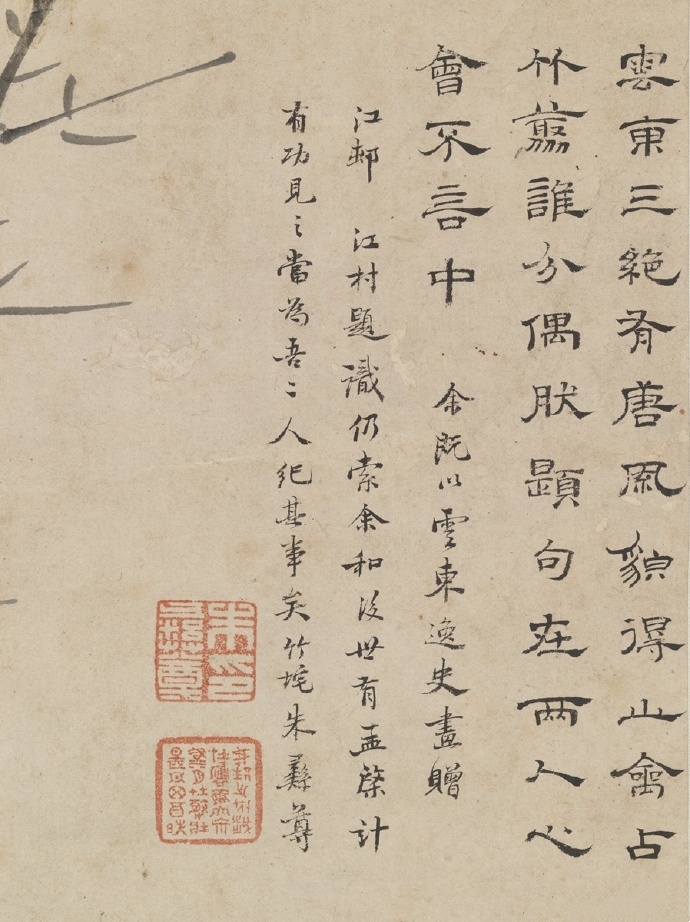 雲東三絕有唐風貌得山禽占
竹藂誰分偶肰題句在兩人心
會不言中 余既以雲東逸史畫贈
江邨 江村題識仍索余和後世有孟棨計
有功見之當為吾二人紀其事矣竹垞朱彝尊
朱印彝尊